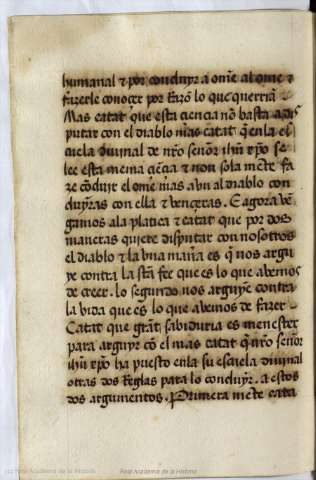 humanal & por concluyr a om̃e al om̃e &
fazerle conoçer por Razõ lo que querriã
Mas catat que esta ciencia nõ basta a dis
putar con el diablo mas catat q̃ en la es
cuela diuinal de nr̃o señor ihũ xp̃o se
lee esta mesma çiẽçia & non sola mẽte fa
ze cõcluir el om̃e mas avn al diablo con
cluyras con ella & venceras. E agora ven
gamos ala platica & catat que por dos
maneras quiere disputar con nosotros
el diablo & la vna man̄a es q̃ nos argu
ye contra la stã fee que es lo que abemos
de creer. lo segundo nos arguye contra
la vida que es lo que abemos de fazer
Catat que grãt sabiduria es menester
para arguyr cõ el mas catat q̃ nr̃o señor
ihũ xp̃o ha puesto enla su escuela diuinal
otras dos Reglas para lo concluyr. a estos
dos argumentos. Primera mẽte cata
(c) Real Academia de la Historia
Real Academia de la Historia